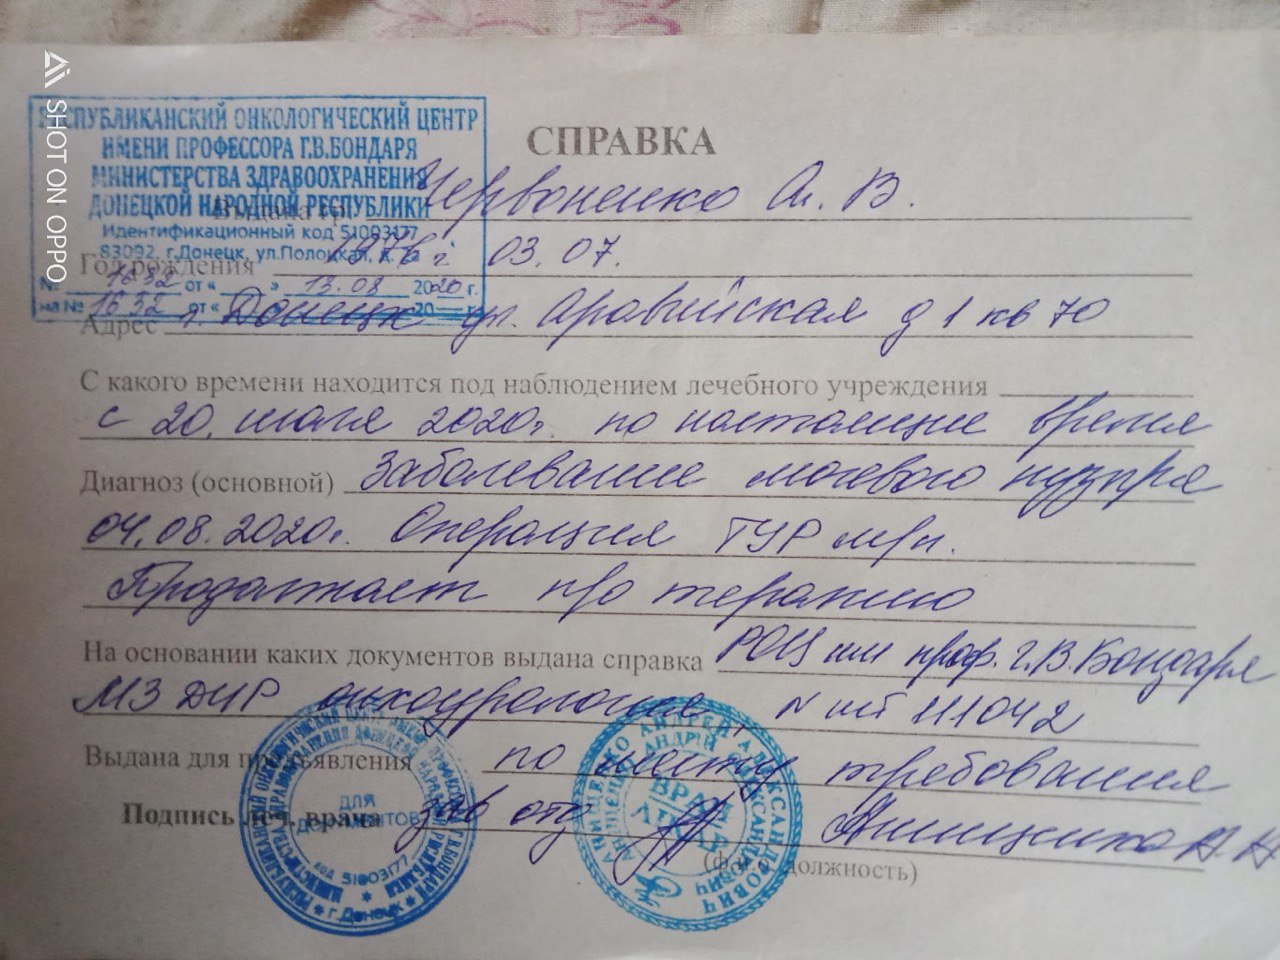 SHOT ON OPPO
РЕСПУБЛИКАНСКИЙ ОНКОЛОГИЧЕСКИЙ ЦЕНТР
ИМЕНИ ПРОФЕССОРА Г.В.БОНДАРЯ
МИНИСТЕРСТВА ЗДРАВООХРАНЕНИЯ
ДОНЕЦКОЙ НАРОДНОЙ РЕСПУБЛИКИ
Идентификационный код 51003177
83092, г.Донецк, ул.Полоцкая,
№ 1632 от « » 13.08 2020 г.
на № 1632 от « 20 г.
СПРАВКА
Червоненко Ал. В.
Год рождения 1976 г 03.07.
Адрес г. Донецк ул. Аравийская д 1 кв 70
С какого времени находится под наблюдением лечебного учреждения
с 20. июля 2020г. по настоящие время
Диагноз (основной) Заболевание мочевого пузыря
04.08.2020г. Операция ТУР м/п.
Продолжает п/о терапию
На основании каких документов выдана справка РОЦ им проф. Г.В. Бондаря
МЗ ДНР онкоурология, N и/б 111042
Выдана для предъявления по месту требования
Подпись леч. врача зав отд
должность)
ДЛЯ
ДОКУМЕНТОВ
код 51003177
г.Донецк
АНДРЕЙ АЛЕКСАНДРОВИЧ
ВРАЧ